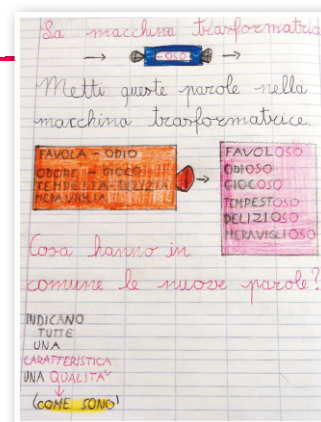 La macchina trasformatric
→ -OSO →
Metti queste parole nella
macchina trasformatrice.
FAVOLA - ODIO
ODORE - GIOCO
TEMPESTA - DELIZIA
MERAVIGLIA
→
FAVOLOSO
ODIOSO
GIOCOSO
TEMPESTOSO
DELIZIOSO
MERAVIGLIOSO
Cosa hanno in
comune le nuove parole?
INDICANO
TUTTE
UNA
CARATTERISTICA
UNA QUALITA'
↓
(COME SONO)